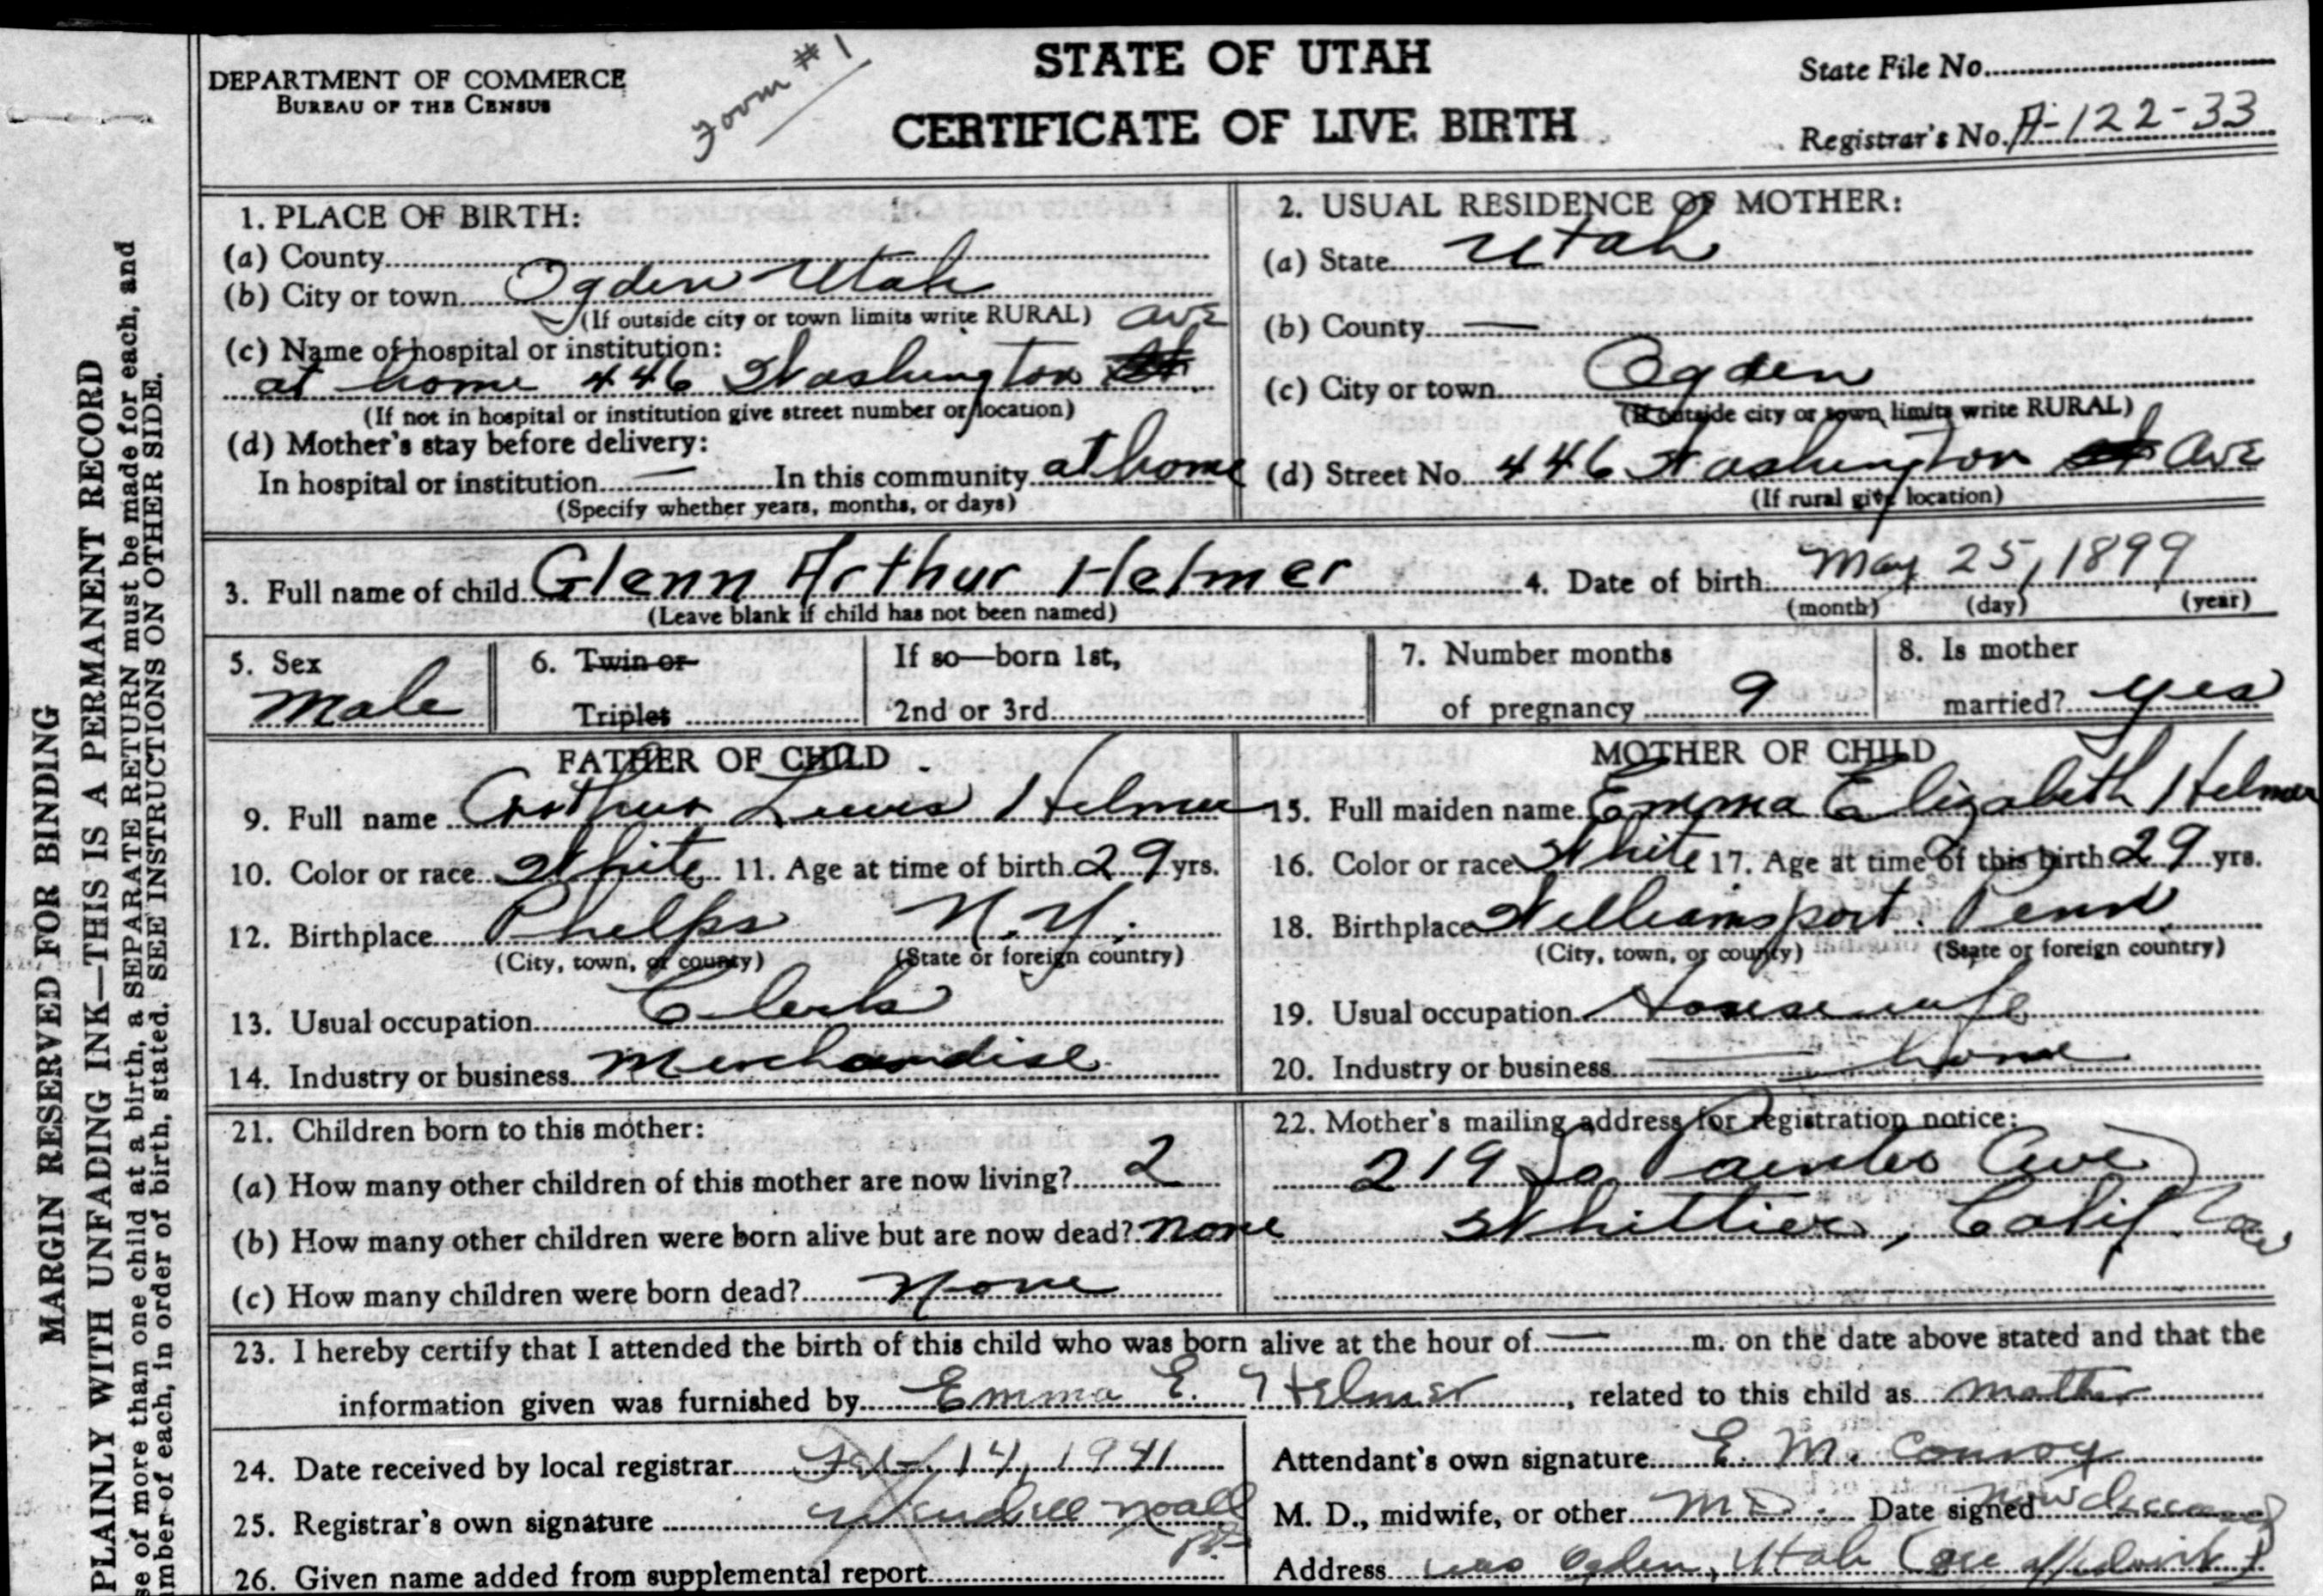 Form #1
STATE OF UTAH
CERTIFICATE OF LIVE BIRTH
DEPARTMENT OF COMMERCE
BUREAU OF THE CENSUS
State File No.
Registrar's No. A-122-33
MARGIN RESERVED FOR BINDING
PLAINLY WITH UNFADING INK—THIS IS A PERMANENT RECORD
se of more than one child at a birth, a SEPARATE RETURN must be made for each, and
mber of each, in order of birth, stated. SEE INSTRUCTIONS ON OTHER SIDE.
1. PLACE OF BIRTH:
(a) County
(b) City or town Ogden Utah
(If outside city or town limits write RURAL)
(c) Name of hospital or institution:
at home 446 Washington Ave
(If not in hospital or institution give street number or location)
(d) Mother's stay before delivery:
In hospital or institution — In this community at home
(Specify whether years, months, or days)
2. USUAL RESIDENCE OF MOTHER:
(a) State Utah
(b) County —
(c) City or town Ogden
(If outside city or town limits write RURAL)
(d) Street No. 446 Washington st Ave
(If rural give location)
3. Full name of child Glenn Arthur Helmer 4. Date of birth May 25, 1899
(Leave blank if child has not been named) (month) (day) (year)
5. Sex Male
6. Twin or Triplet
If so—born 1st, 2nd or 3rd
7. Number months of pregnancy 9
8. Is mother married? yes
FATHER OF CHILD
9. Full name Arthur Lewis Helmer
10. Color or race White 11. Age at time of birth 29 yrs.
12. Birthplace Phelps N.Y.
(City, town, or county) (State or foreign country)
13. Usual occupation Clerk
14. Industry or business Merchandise
MOTHER OF CHILD
15. Full maiden name Emma Elizabeth Helmer
16. Color or race White 17. Age at time of this birth 29 yrs.
18. Birthplace Williamsport. Penn
(City, town, or county) (State or foreign country)
19. Usual occupation Housewife
20. Industry or business — home
21. Children born to this mother:
(a) How many other children of this mother are now living? 2
(b) How many other children were born alive but are now dead? none
(c) How many children were born dead? None
22. Mother's mailing address for registration notice:
219 So Painter Ave
Whittier, Calif
23. I hereby certify that I attended the birth of this child who was born alive at the hour of — m. on the date above stated and that the
information given was furnished by Emma E. Helmer, related to this child as mother
24. Date received by local registrar Feb. 14, 1941
25. Registrar's own signature Noall
26. Given name added from supplemental report
Attendant's own signature E. M. Conroy
M. D., midwife, or other M D. Date signed Now deceased
Address was Ogden, Utah (see affidavit)